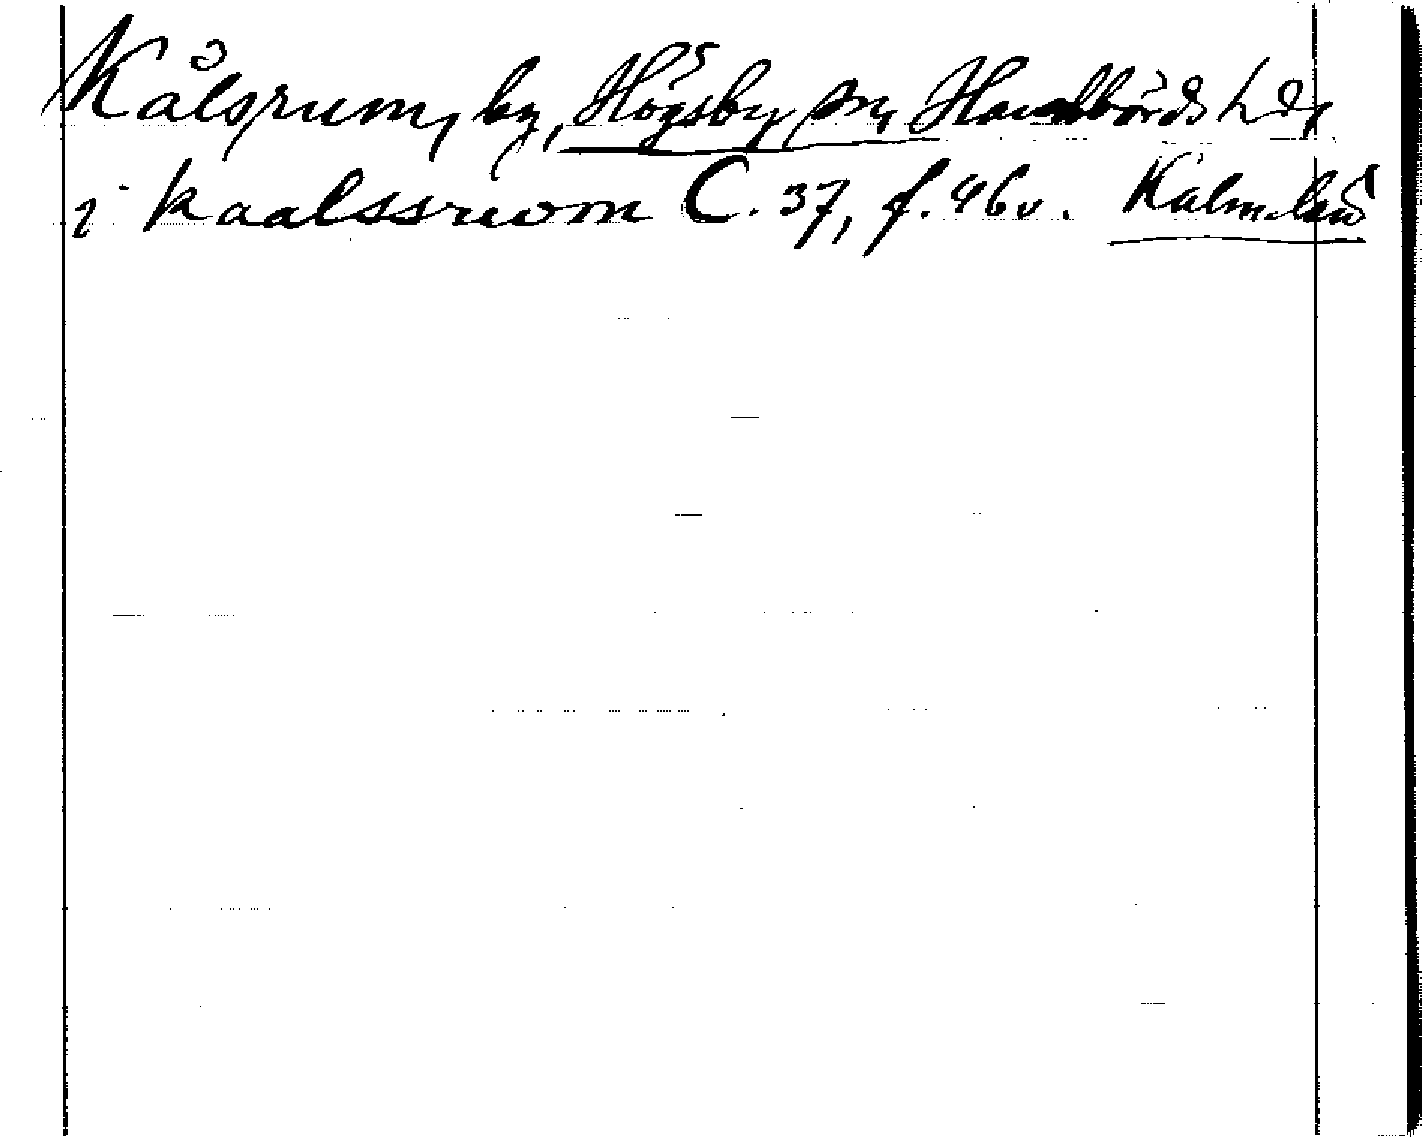 Kålsrum, by, Högsby sn, Handbörds hd,
i kaalssrwom C. 37, f. 46v. Kalm. län